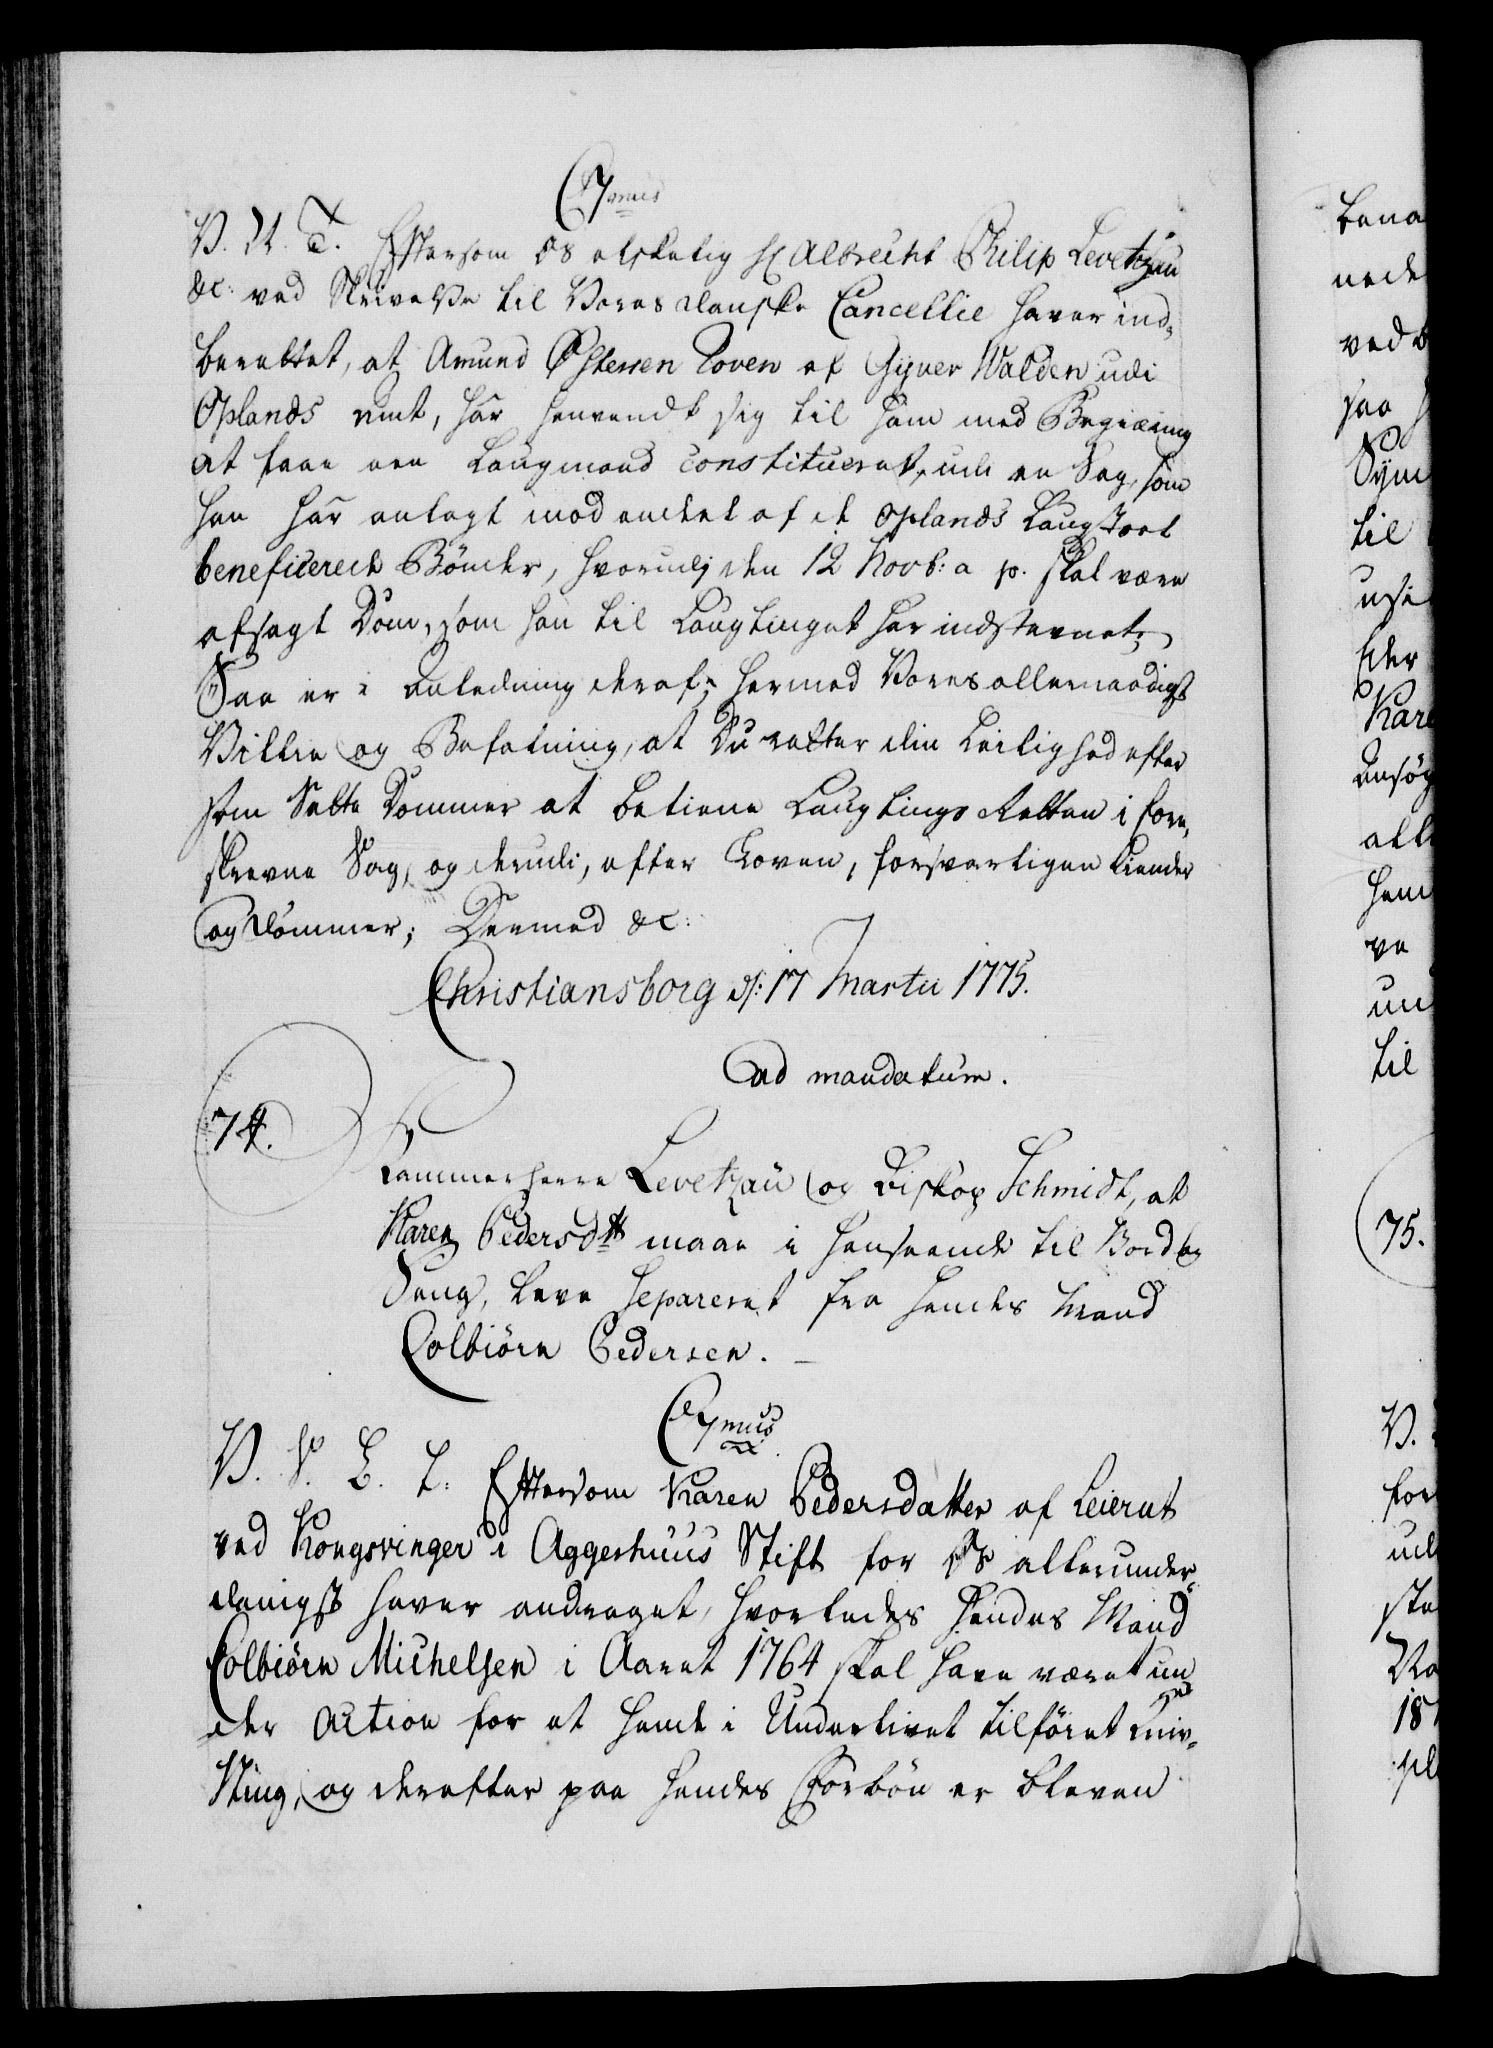 C7mus
V. A. T. Eftersom Os elskelig Hr Albrecht Philip Levetzau
&c: ved Skrivelse til Vores danske Cancellie haver ind-
berettet, at Amund Østensen Roven af Gyver Walden udi
Oplands Amt, har henvendt sig til ham med Begiæring
at faae een Laugmand constitueret, udi en Sag, som
han har anlagt mod endeel af de Oplands Laugstoel
beneficerede Bønder, hvorudj den 12 Novb: a p. skal være
afsagt Dom, som han til Laugtinget har indstævnet;
Saa er i Anledning deraf, hermed Vores allernaadigst
Villie og Befalning, at Du retter din Leilighed efter
som Sætte Dommer at betiene Laugtings Retten i fore-
skrevne Sag, og derudi, efter Loven, forsvarligen kiender
og dømmer; Dermed &c:
Christiansborg d: 17 Martii 1775.
Ad mandatum.
74.
Kammerherre Levetzau og Biskop Schmidt, at
Karen Pedersdtt maae i henseende til Bord og
Seng, leve separeret fra hendes Mand
Colbiørn Pedersen.
C7mus
V. S. B. T. Eftersom Karen Pedersdatter af Leierut
ved Kongsvinger i Aggershuus Stift for Os allerunder-
danigst haver andraget, hvorledes hendes Mand
Colbiørn Michelsen i Aaret 1764 skal have været un
der Action for et hende i Underlivet tilføiet Kniv-
Sting, og derefter paa hendes Forbøn er bleven
75.